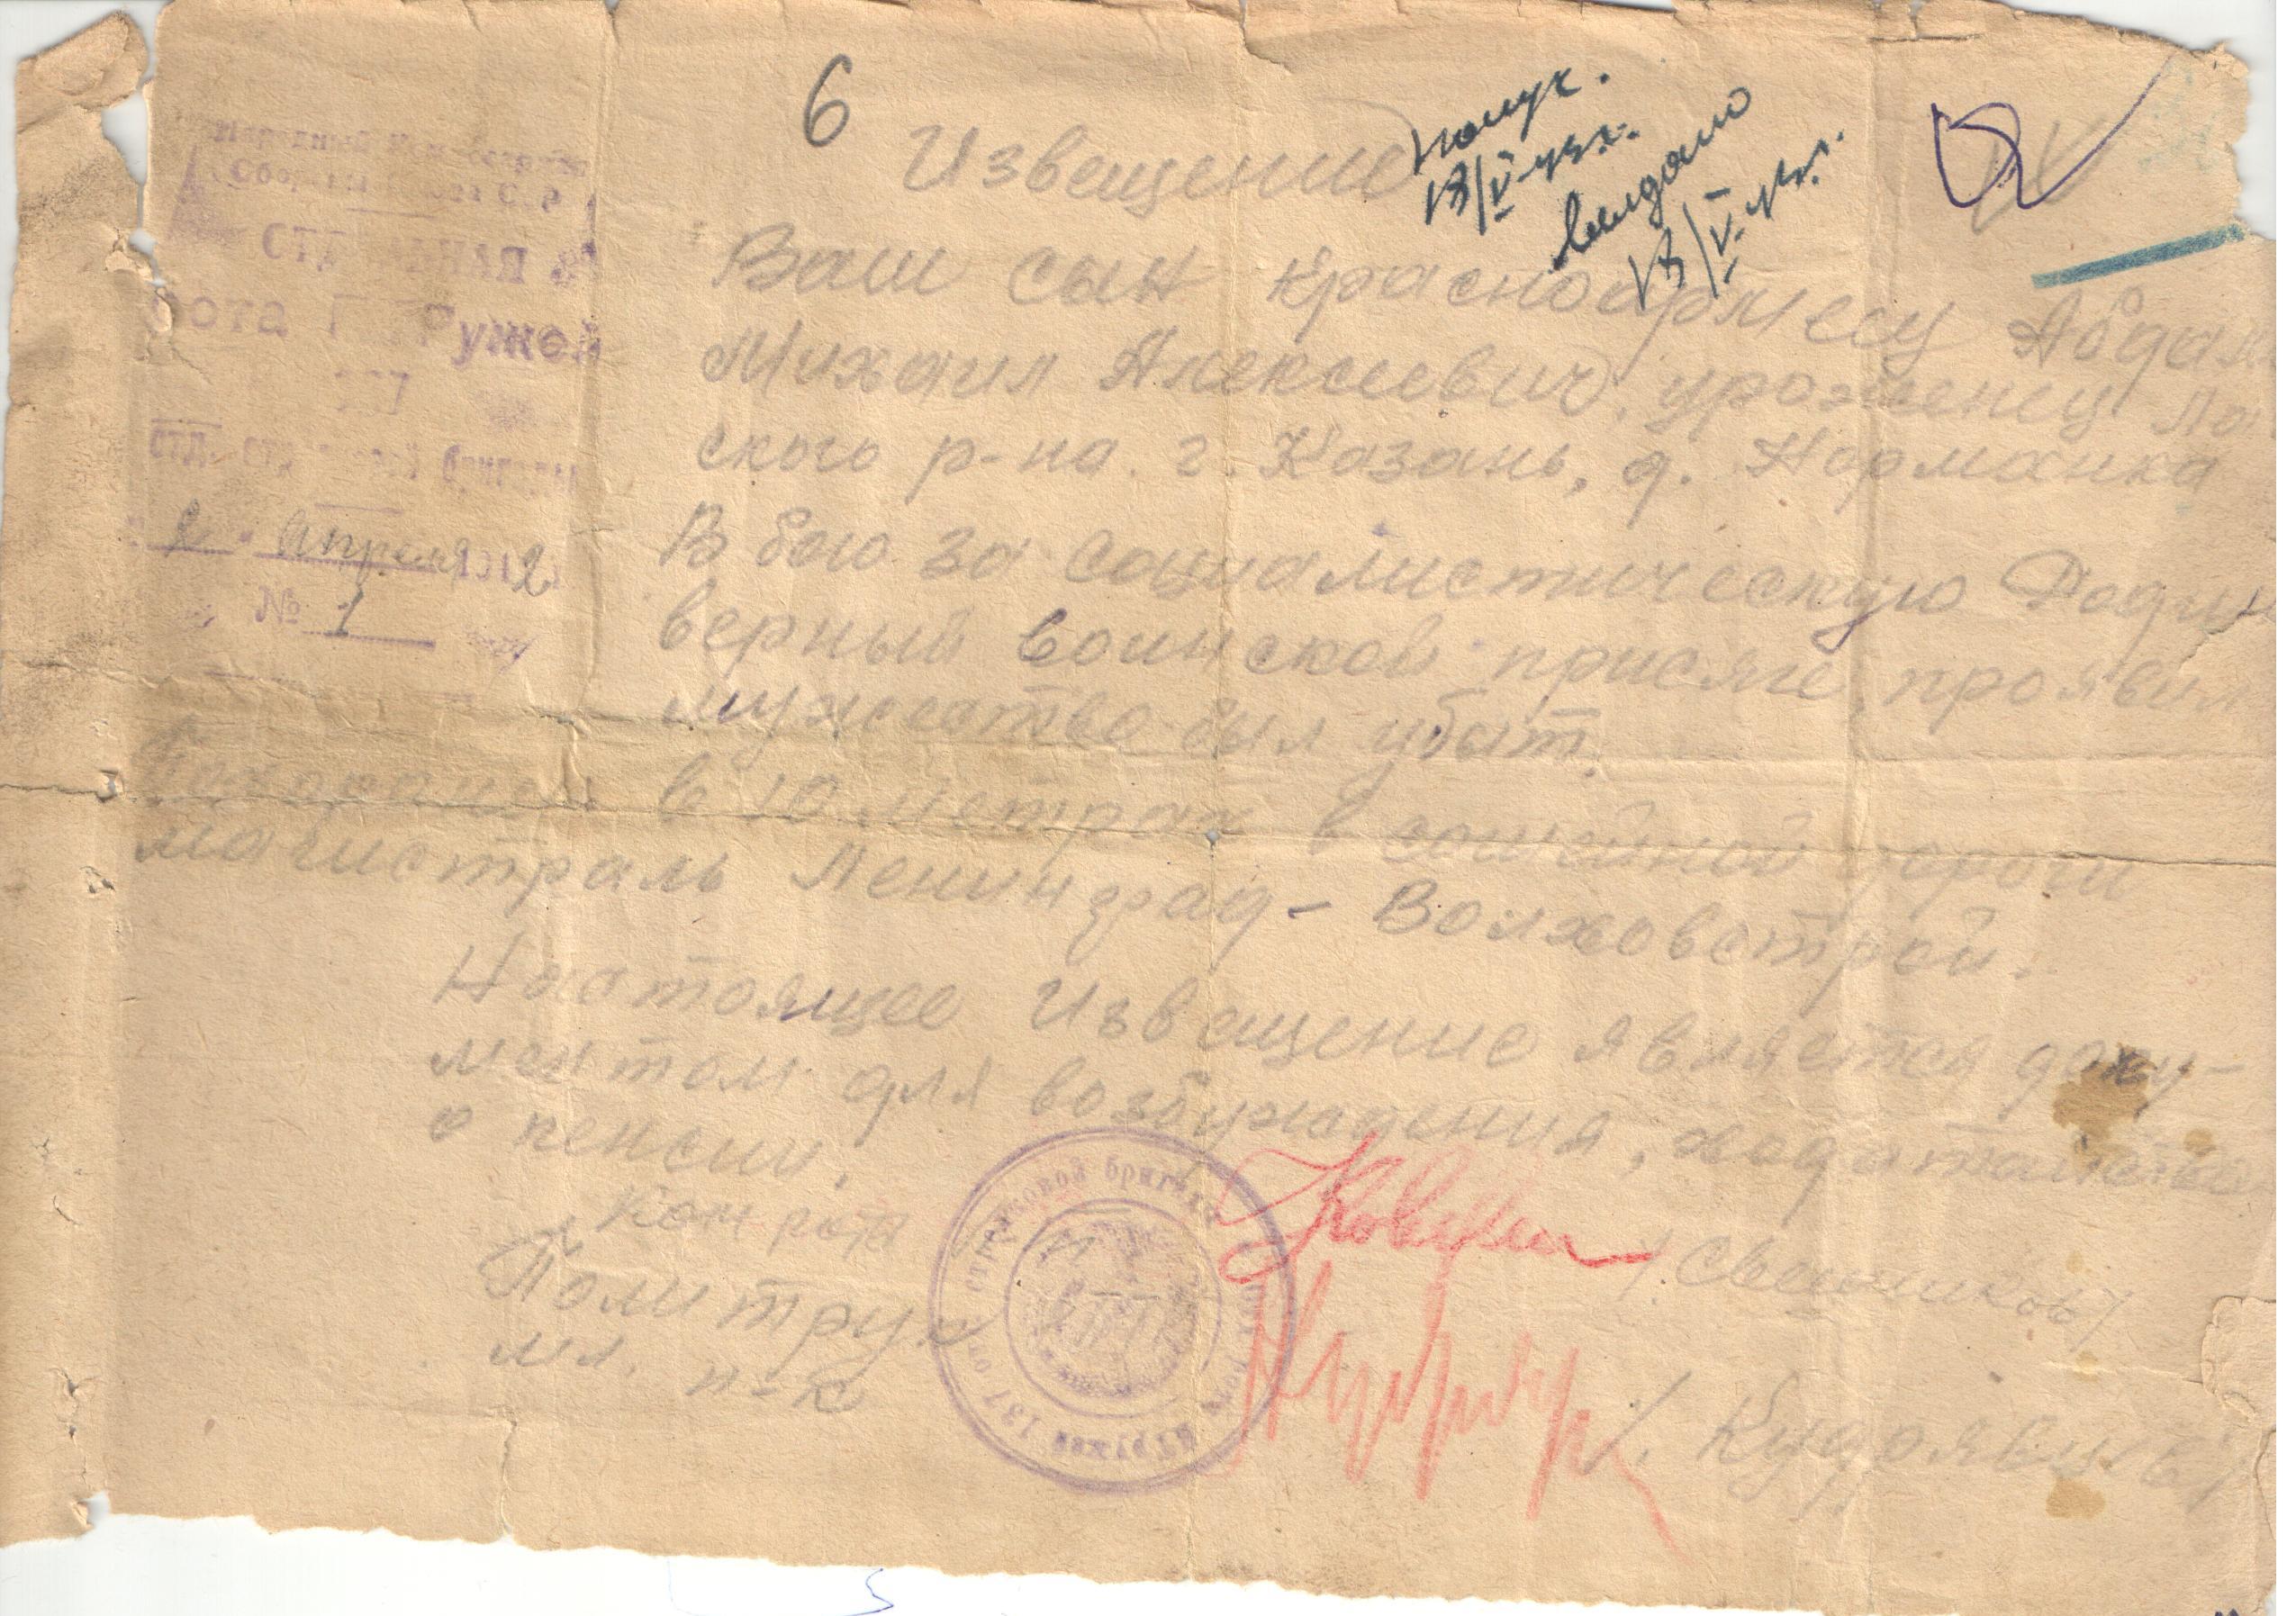 6
Извещение
получ.
13/V-42г.
выдано
13/V-42г.
Народный Комиссариат
Обороны Союза С.С.Р
СТРЕЛЬНАЯ
рота ПТ Ружей
отд. стрелковой бригады
2 " апреля 1942
№ 1
Ваш сын красноармеец Абдал
Михаил Алексеевич, уроженец Ла
ского р-на. г. Казань, д. Норманка
В бою за социалистическую Родин
верный воинской присяге, проявил
мужество был убит.
Похоронен в 10 метрах в сошейной дороги
магистраль Ленинград - Волховстрой.
Настоящее извещение является доку-
ментом для возбуждения, ходатайство
о пенсии.
Ком рота /Свешников/
Политрук
мл. п-к /. Кудрявцев/
137 отд. стрелковой бригады рота ПТ ружей